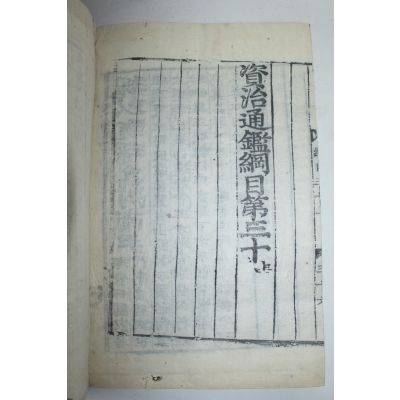 資治通鑑綱目第三十上